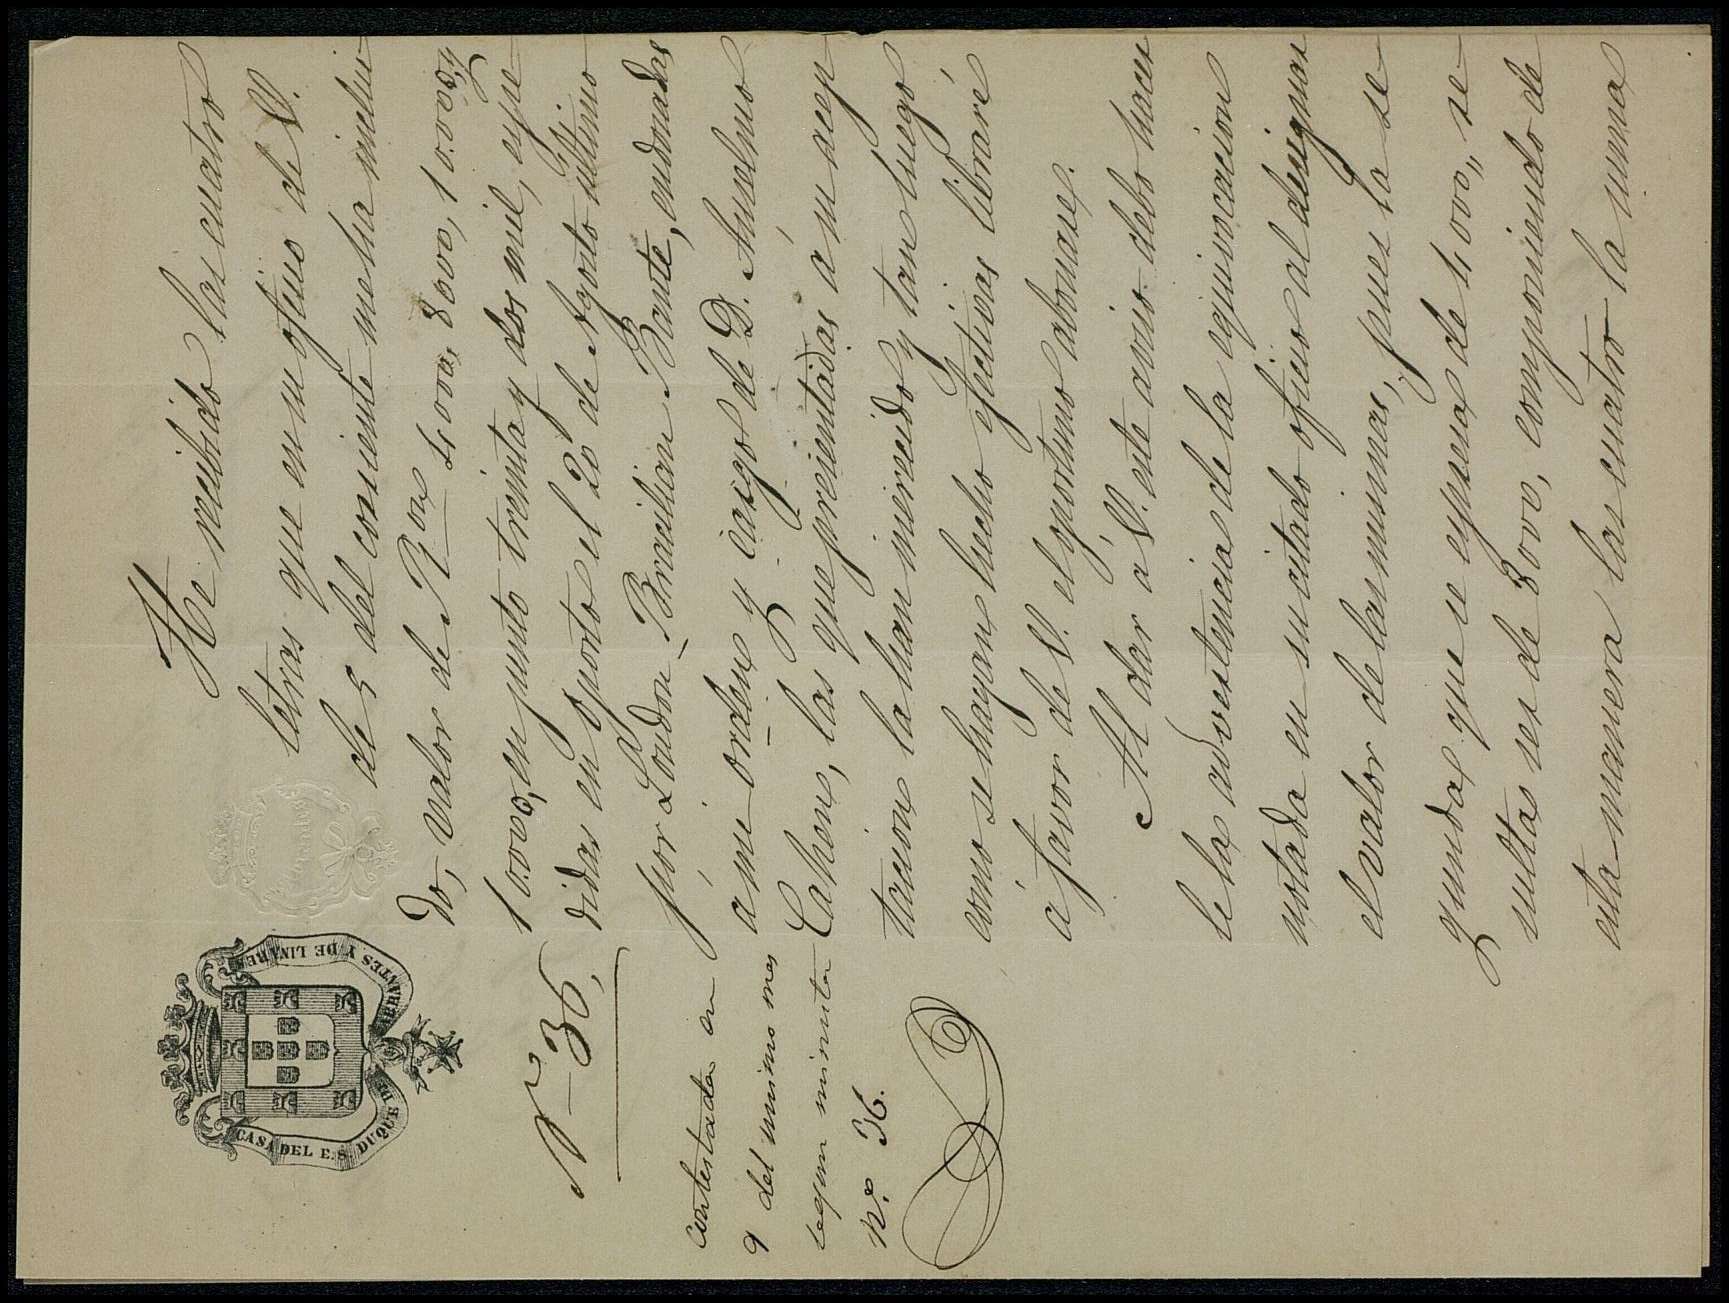 CASA DEL E. S. DUQUE DE ABRANTES Y DE LINARES
Nº 36,
contestada en
9 del mismo mes
segun minuta
nº 36.
He recibido las cuatro
letras que en su oficio de V.
de 5 del corriente me ha incluí
do, valor de Rson 4,000, 8000, 10.000 y
10.000, en junto treinta y dos mil, espe
didas en Oporto el 20 de Agosto último
por London Brasilian Bank, endosadas
á mi orden y cargo de D. Anselmo
Cahen, las que presentadas á su acep
tacion la han merecido y tan luego
como se hagan hecho efectivas libraré
a favor de V. el oportuno abonaré.
Al dar á V. este aviso debo hacer
le la advertencia de la equivocacion
notada en su citado oficio al designar
el valor de las mismas, pues la se
gunda que se espresa de 4000,, re
sulta ser de 8000, componiendo de
esta manera las cuatro la suma